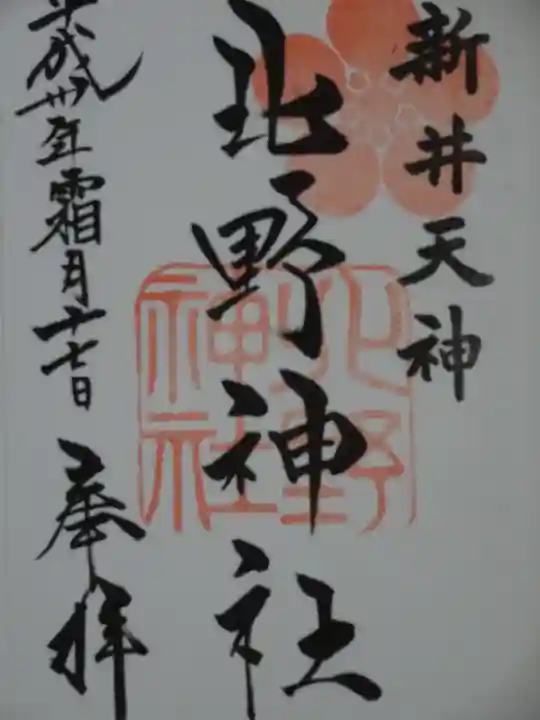 新井天神
北野神社
北野神社
平成卅年霜月十七日
奉拝